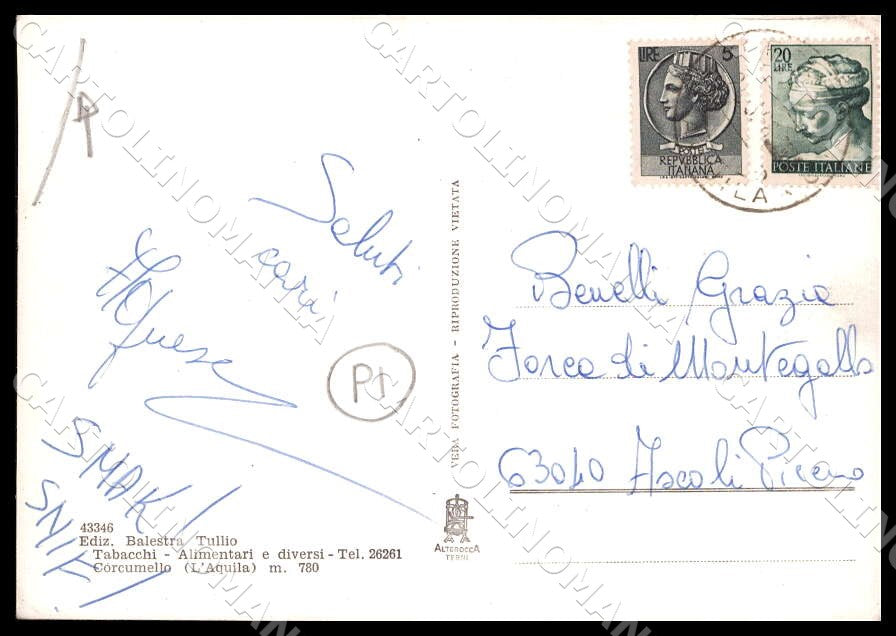 Saluti
cari
SMAK!
SNIK!
P1
43346
Ediz. Balestra Tullio
Tabacchi - Alimentari e diversi - Tel. 26261
Corcumello (L'Aquila) m. 780
VERA FOTOGRAFIA - RIPRODUZIONE VIETATA
ALTEROCCA
TERNI
LIRE 5
POSTE
REPVBBLICA
ITALIANA
20
LIRE
POSTE ITALIANE
Benelli Grazia
Forca di Montegallo
63040 Ascoli Piceno
CARTOLINOMANIA